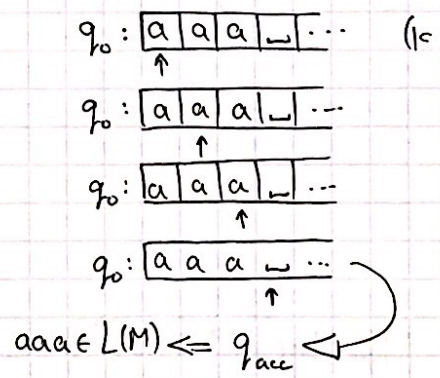 q₀: a a a ␣ ...
q₀: a a a ␣ ...
q₀: a a a ␣ ...
q₀: a a a ␣ ...
aaa ∈ L(M) <= q_acc